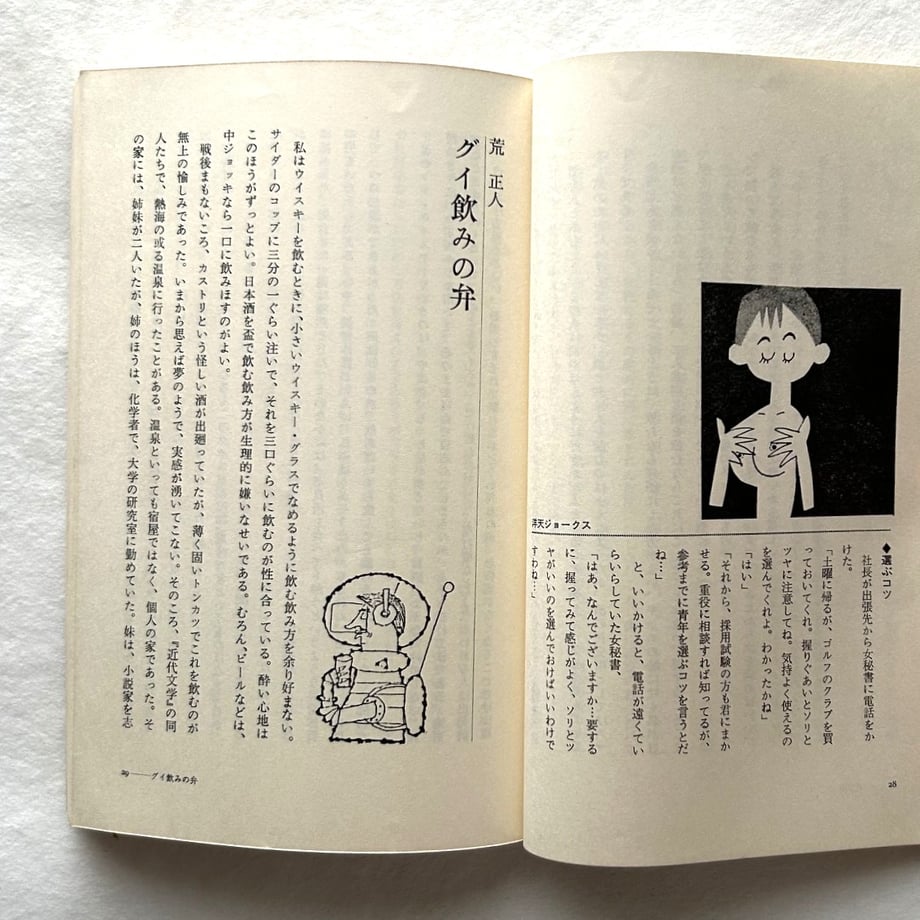 ◆選ぶコツ
社長が出張先から女秘書に電話をか
けた。
「土曜に帰るが、ゴルフのクラブを買
っておいてくれ。握りぐあいとソリと
ツヤに注意してね。気持よく使えるの
を選んでくれよ。わかったかね」
「はい」
「それから、採用試験の方も君にまか
せる。重役に相談すれば知ってるが、
参考までに青年を選ぶコツを言うとだ
ね…」
と、いいかけると、電話が遠くてい
らいらしていた女秘書、
「はあ、なんでございますか…要する
に、握ってみて感じがよく、ソリとツ
ヤがいいのを選んでおけばいいわけで
すわね…」
洋天ジョークス
28
荒 正人
グイ飲みの弁
私はウイスキーを飲むときに、小さいウイスキー・グラスでなめるように飲む飲み方を余り好まない。
サイダーのコップに三分の一ぐらい注いで、それを三口ぐらいに飲むのが性に合っている。酔い心地は
このほうがずっとよい。日本酒を盃で飲む飲み方が生理的に嫌いなせいである。むろん、ビールなどは、
中ジョッキなら一口に飲みほすのがよい。
戦後まもないころ、カストリという怪しい酒が出廻っていたが、薄く固いトンカツでこれを飲むのが
無上の愉しみであった。いまから思えば夢のようで、実感が湧いてこない。そのころ、『近代文学』の同
人たちで、熱海の或る温泉に行ったことがある。温泉といっても宿屋ではなく、個人の家であった。そ
の家には、姉妹が二人いたが、姉のほうは、化学者で、大学の研究室に勤めていた。妹は、小説家を志
29——グイ飲みの弁